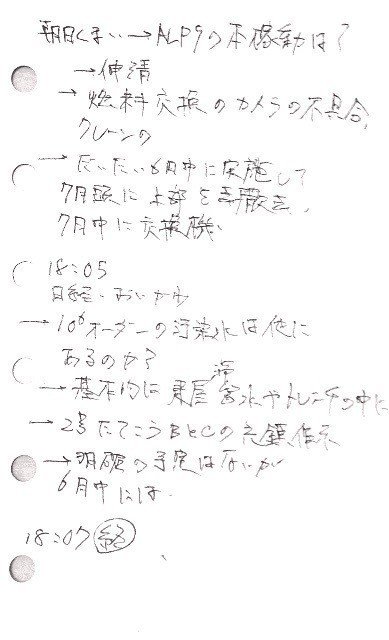 朝日くまい→ALPSの本稼動は?
→申請
→燃料交換のカメラの不具合、
クレーンの
→だいたい6月中に実施して
7月頭に上部を
7月中に交換機
18:05
日経・おいかわ
→10⁶オーダーの汚染水は他に
あるのか?
→基本的に 滞留水やトレンチの中に
→2号たてこうBとCの充填
→明確の予定はないが
6月中には。
18:07 終